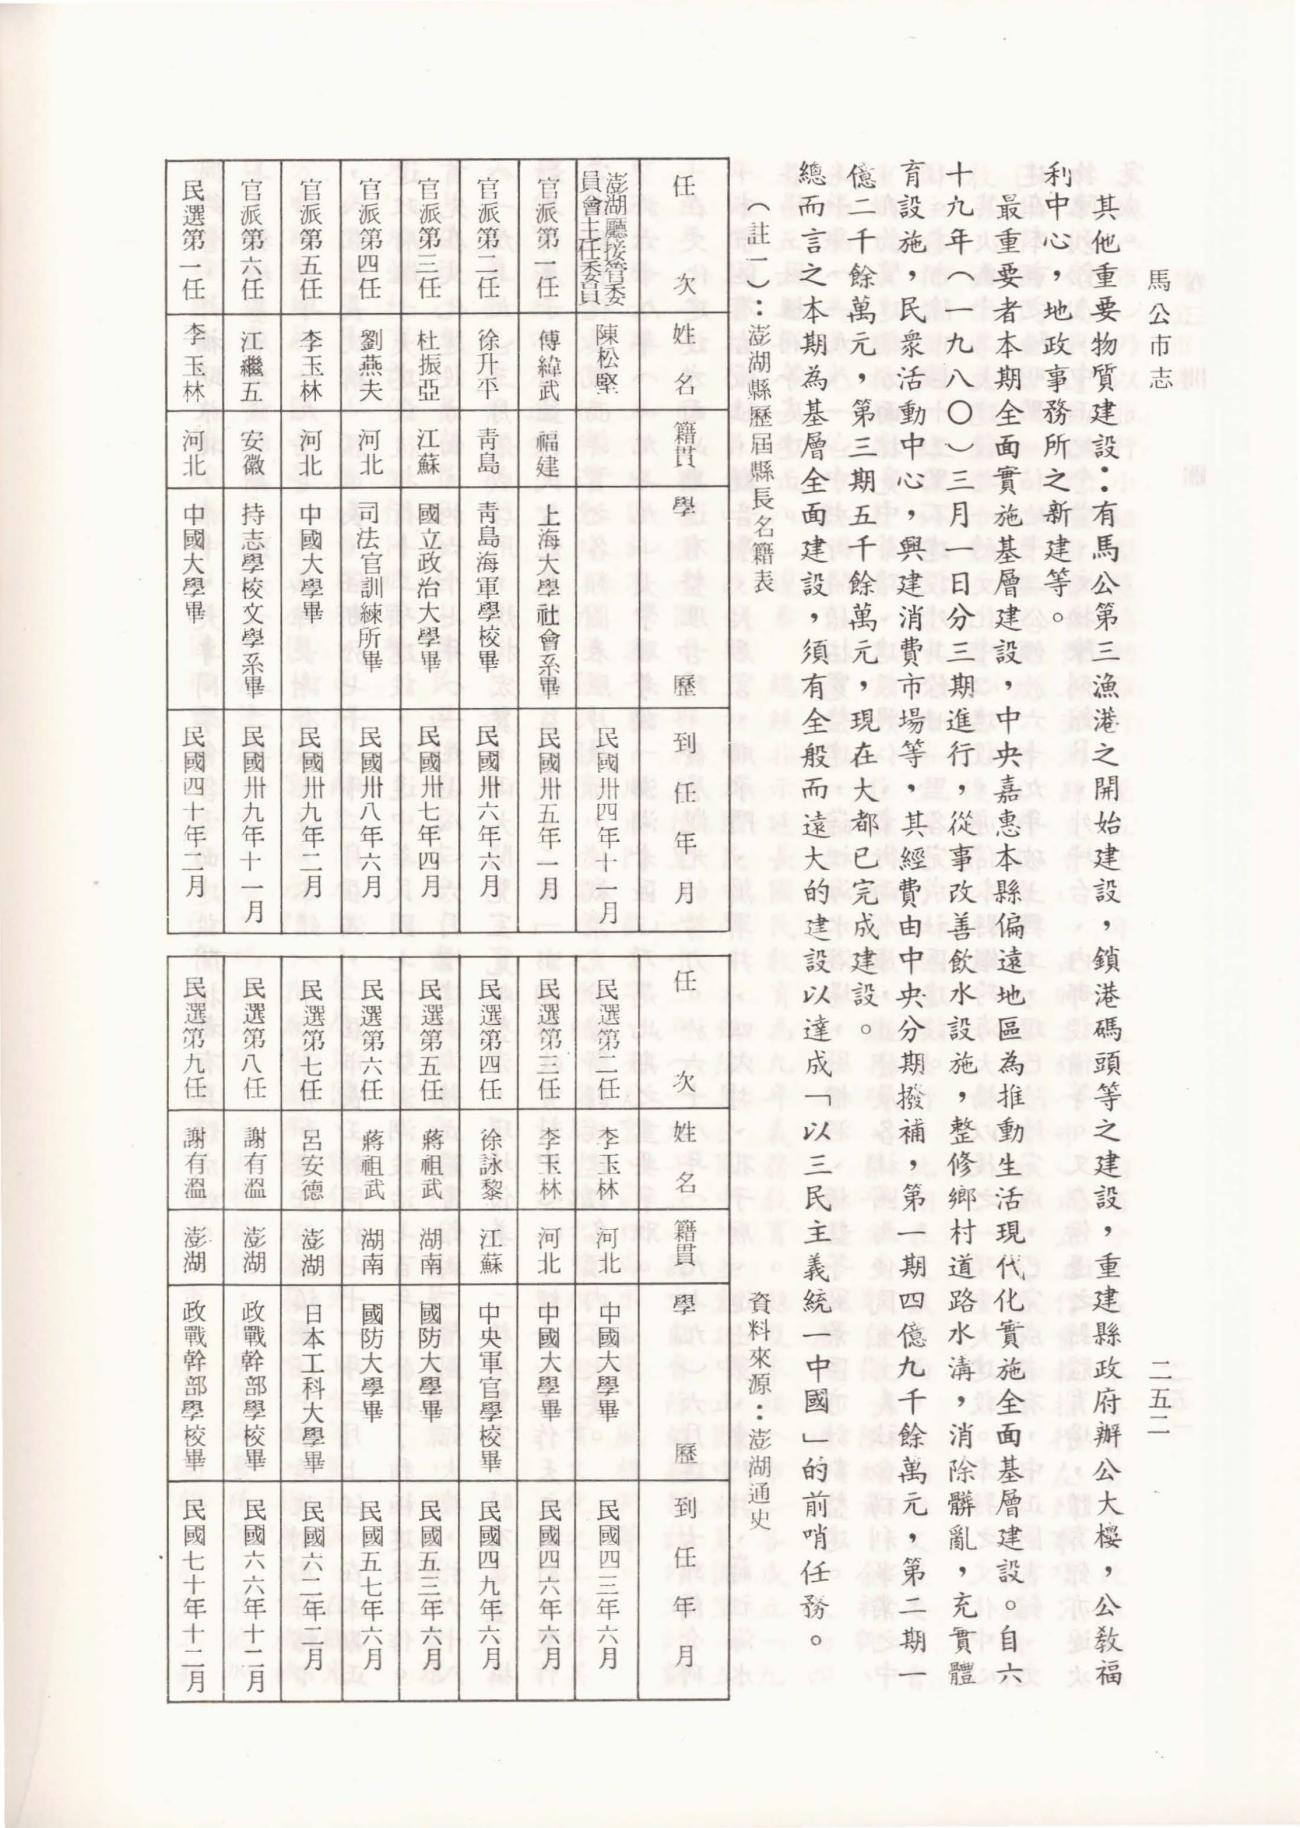 馬公市志
二五二
其他重要物質建設：有馬公第三漁港之開始建設，鎖港碼頭等之建設，重建縣政府辦公大樓，公教福
利中心，地政事務所之新建等。
最重要者本期全面實施基層建設，中央嘉惠本縣偏遠地區為推動生活現代化實施全面基層建設。自六
十九年（一九八〇）三月一日分三期進行，從事改善飲水設施，整修鄉村道路水溝，消除髒亂，充實體
育設施，民衆活動中心，興建消費市場等，其經費由中央分期撥補，第一期四億九千餘萬元，第二期一
億二千餘萬元，第三期五千餘萬元，現在大都已完成建設。
總而言之本期為基層全面建設，須有全般而遠大的建設以達成「以三民主義統一中國」的前哨任務。
（註一）：澎湖縣歷屆縣長名籍表
資料來源：澎湖通史
任次 姓名 籍貫 學歷 到任年月
澎湖廳接管委員會主任委員 陳松堅 民國卅四年十一月
官派第一任 傅緯武 福建 上海大學社會系畢 民國卅五年一月
官派第二任 徐升平 青島 青島海軍學校畢 民國卅六年六月
官派第三任 杜振亞 江蘇 國立政治大學畢 民國卅七年四月
官派第四任 劉燕夫 河北 司法官訓練所畢 民國卅八年六月
官派第五任 李玉林 河北 中國大學畢 民國卅九年二月
官派第六任 江繼五 安徽 持志學校文學系畢 民國卅九年十一月
民選第一任 李玉林 河北 中國大學畢 民國四十年二月
任次 姓名 籍貫 學歷 到任年月
民選第二任 李玉林 河北 中國大學畢 民國四三年六月
民選第三任 李玉林 河北 中國大學畢 民國四六年六月
民選第四任 徐詠黎 江蘇 中央軍官學校畢 民國四九年六月
民選第五任 蔣祖武 湖南 國防大學畢 民國五三年六月
民選第六任 蔣祖武 湖南 國防大學畢 民國五七年六月
民選第七任 呂安德 澎湖 日本工科大學畢 民國六二年二月
民選第八任 謝有溫 澎湖 政戰幹部學校畢 民國六六年十二月
民選第九任 謝有溫 澎湖 政戰幹部學校畢 民國七十年十二月